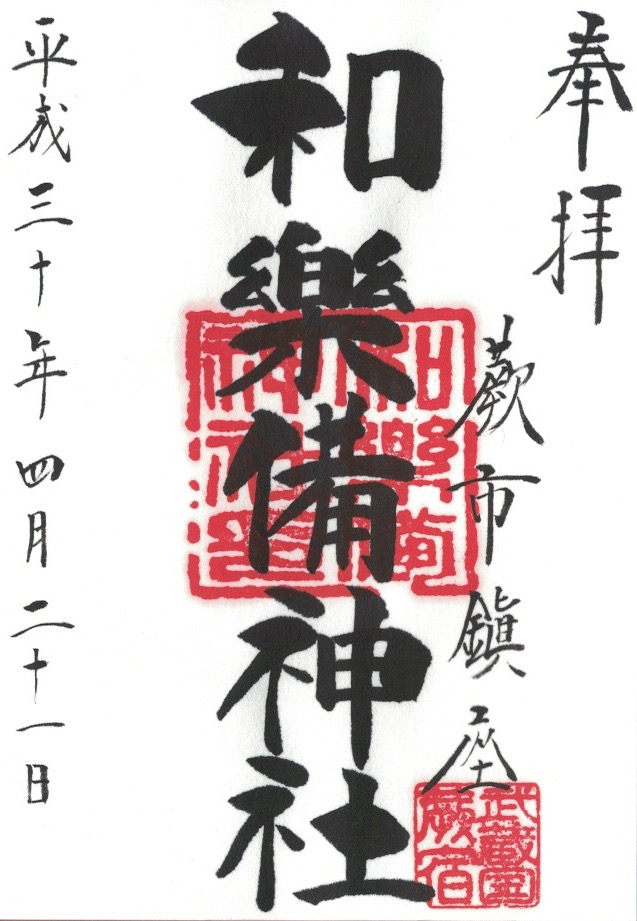 奉拝
蕨市鎮座
和樂備神社
平成三十年四月二十一日
和樂備
神社
武蔵国
蕨宿